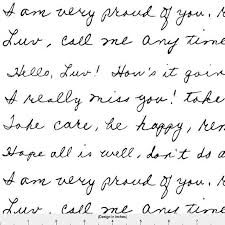 I am very proud of you,
Luv, call me any time
Hello, Luv! How's it goin
I really miss you! Take
Take care, be happy, rem
Hope all is well, don't do a
I am very proud of you,
Luv. call me any time
(Design in Inches)